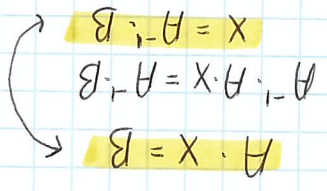 A · X = B
A⁻¹ · A · X = A⁻¹ · B
X = A⁻¹ · B